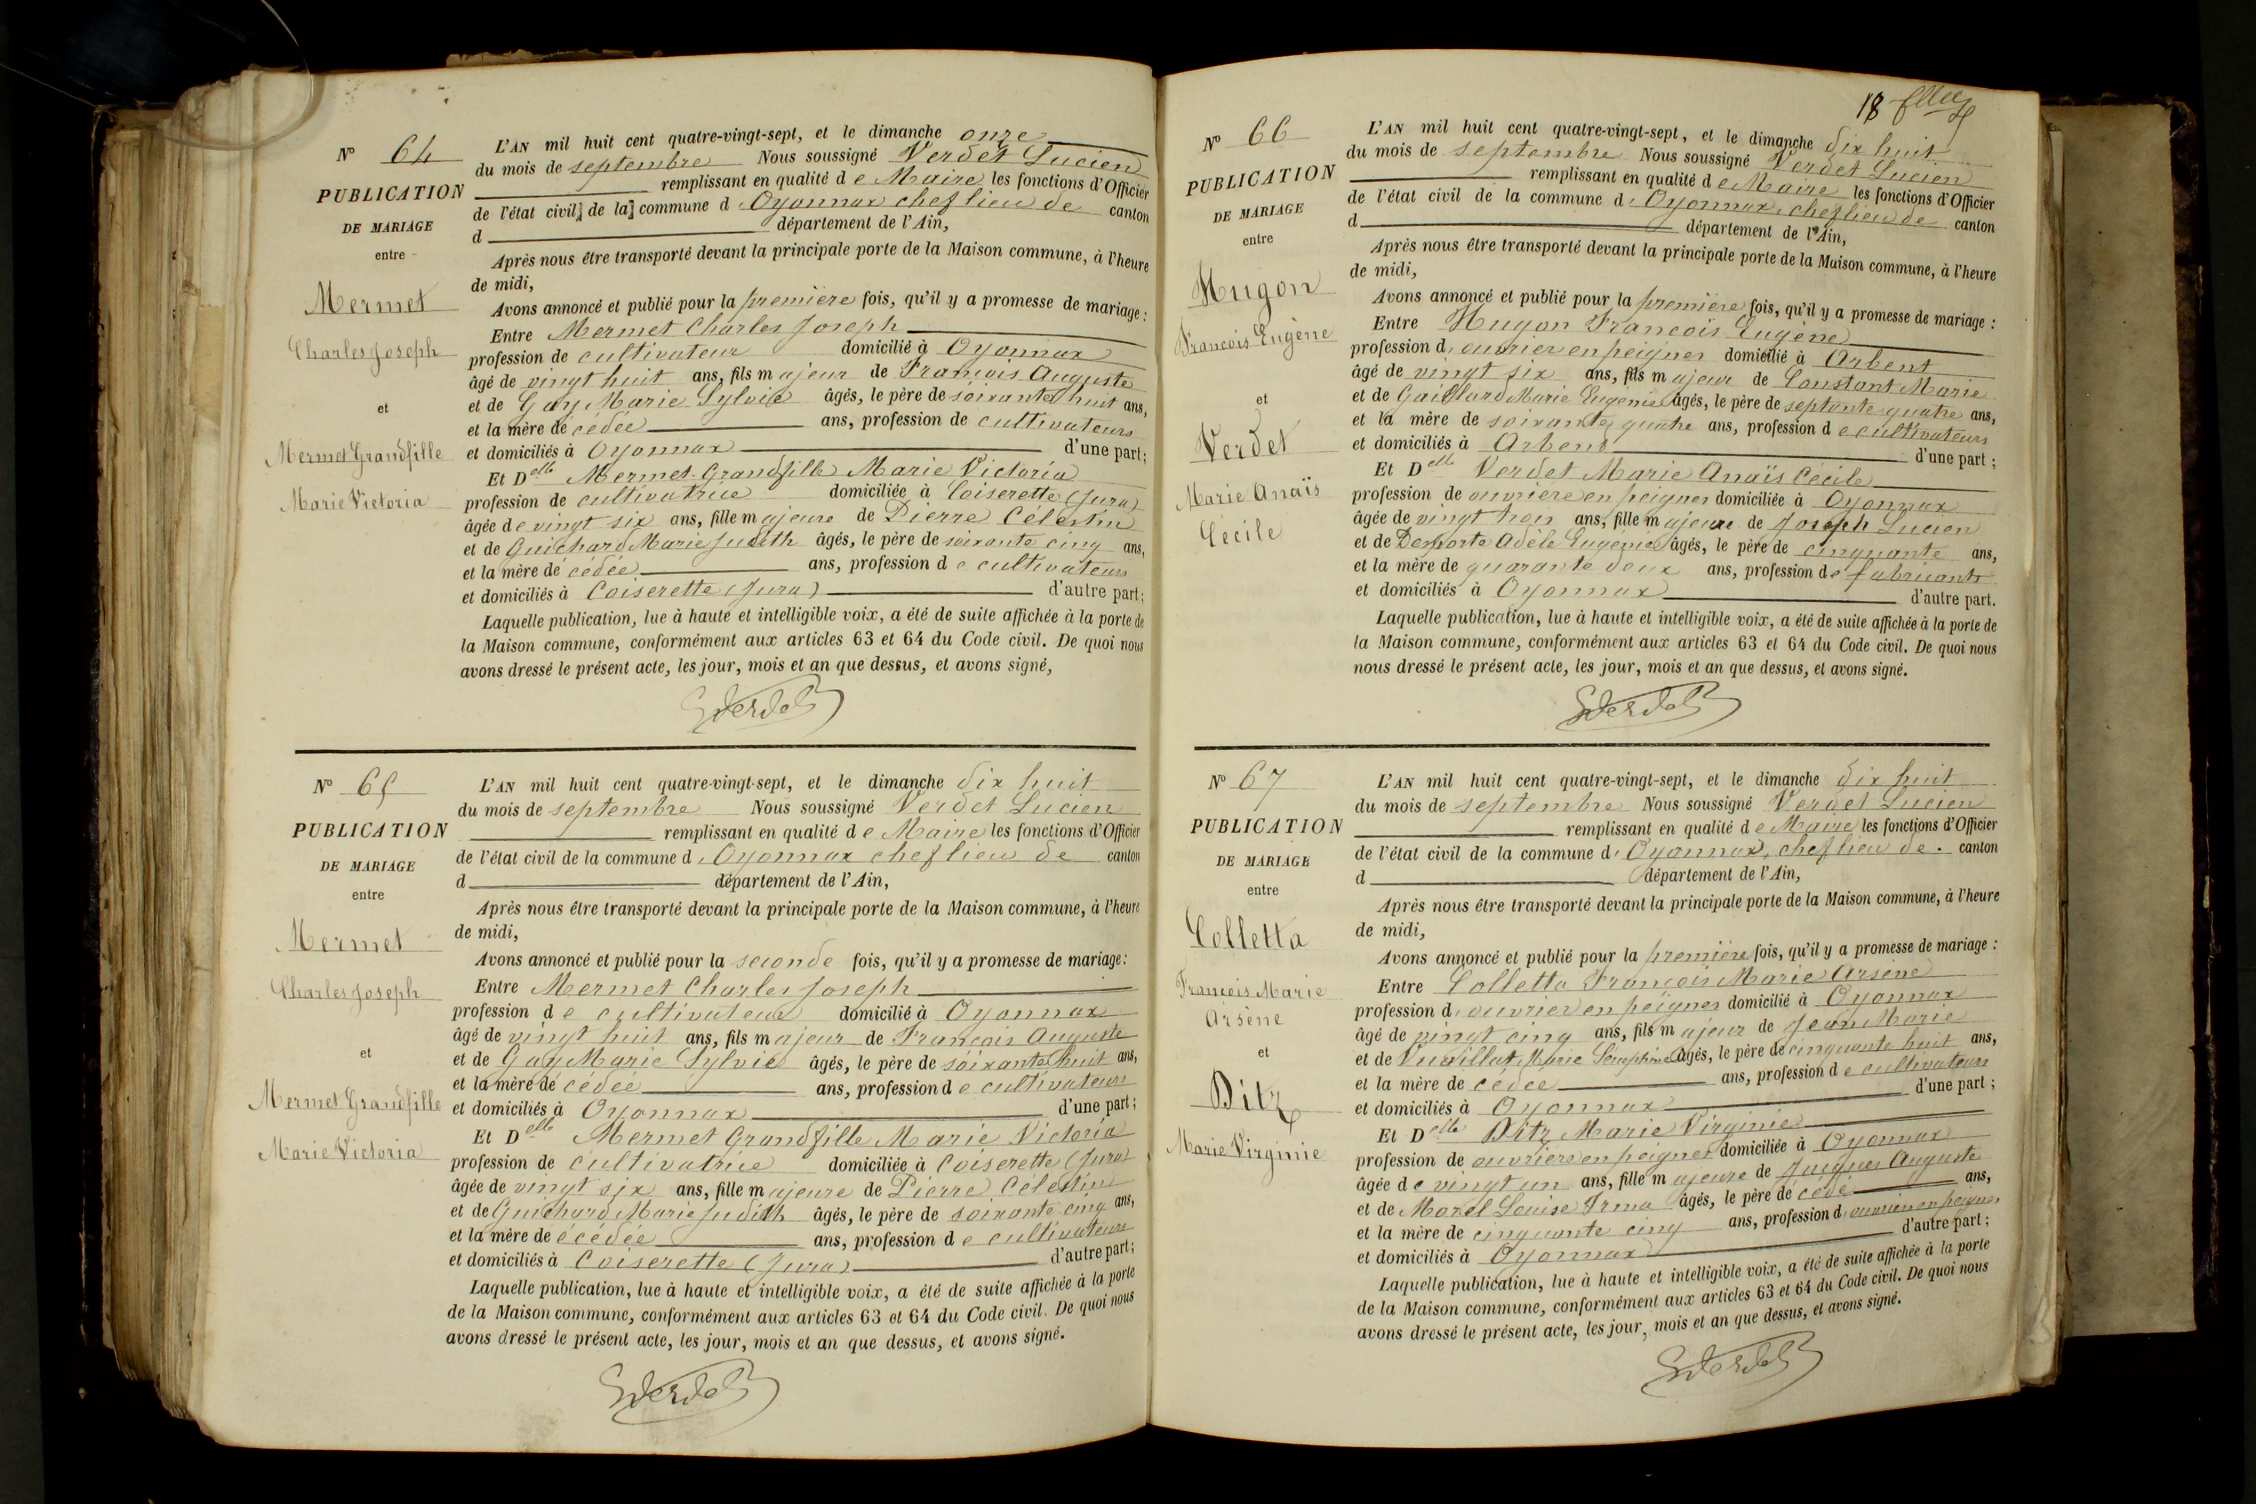 N° 64
PUBLICATION
DE MARIAGE
entre
Mermet
Charles Joseph
et
Mermet Grandfille
Marie Victoria
L'AN mil huit cent quatre-vingt-sept, et le dimanche onze
du mois de septembre Nous soussigné Verdet Lucien
remplissant en qualité de Maire les fonctions d'Officier
de l'état civil de la commune d'Oyonnax chef lieu de canton
d département de l'Ain,
Après nous être transporté devant la principale porte de la Maison commune, à l'heure
de midi,
Avons annoncé et publié pour la première fois, qu'il y a promesse de mariage :
Entre Mermet Charles Joseph
profession de cultivateur domicilié à Oyonnax
âgé de vingt huit ans, fils majeur de François Auguste
et de Gay Marie Sylvie âgés, le père de soixante huit ans,
et la mère de cédée ans, profession de cultivateurs
et domiciliés à Oyonnax d'une part;
Et Delle Mermet Grandfille Marie Victoria
profession de cultivatrice domiciliée à Coiserette (Jura)
âgée de vingt six ans, fille majeure de Pierre Célestin
et de Guichard Marie Judith âgés, le père de soixante cinq ans,
et la mère dé cédée ans, profession de cultivateurs
et domiciliés à Coiserette (Jura) d'autre part;
Laquelle publication, lue à haute et intelligible voix, a été de suite affichée à la porte de
la Maison commune, conformément aux articles 63 et 64 du Code civil. De quoi nous
avons dressé le présent acte, les jour, mois et an que dessus, et avons signé,
LVerdet
N° 65
PUBLICATION
DE MARIAGE
entre
Mermet
Charles Joseph
et
Mermet Grandfille
Marie Victoria
L'AN mil huit cent quatre-vingt-sept, et le dimanche dix huit
du mois de septembre Nous soussigné Verdet Lucien
remplissant en qualité de Maire les fonctions d'Officier
de l'état civil de la commune d'Oyonnax chef lieu de canton
d département de l'Ain,
Après nous être transporté devant la principale porte de la Maison commune, à l'heure
de midi,
Avons annoncé et publié pour la seconde fois, qu'il y a promesse de mariage:
Entre Mermet Charles Joseph
profession de cultivateur domicilié à Oyonnax
âgé de vingt huit ans, fils majeur de François Auguste
et de Gay Marie Sylvie âgés, le père de soixante huit ans,
et la mère dé cédée ans, profession de cultivateurs
et domiciliés à Oyonnax d'une part;
Et Delle Mermet Grandfille Marie Victoria
profession de cultivatrice domiciliée à Coiserette (Jura)
âgée de vingt six ans, fille majeure de Pierre Célestin
et de Guichard Marie Judith âgés, le père de soixante cinq ans,
et la mère de écédée ans, profession de cultivateurs
et domiciliés à Coiserette (Jura) d'autre part;
Laquelle publication, lue à haute et intelligible voix, a été de suite affichée à la porte
de la Maison commune, conformément aux articles 63 et 64 du Code civil. De quoi nous
avons dressé le présent acte, les jour, mois et an que dessus, et avons signé.
LVerdet
18
N° 66
PUBLICATION
DE MARIAGE
entre
Hugon
François Eugène
et
Verdet
Marie Anaïs
Cécile
L'AN mil huit cent quatre-vingt-sept, et le dimanche dix huit
du mois de septembre Nous soussigné Verdet Lucien
remplissant en qualité de Maire les fonctions d'Officier
de l'état civil de la commune d'Oyonnax, chef lieu de canton
d département de l'Ain,
Après nous être transporté devant la principale porte de la Maison commune, à l'heure
de midi,
Avons annoncé et publié pour la première fois, qu'il y a promesse de mariage :
Entre Hugon François Eugène
profession d'ouvrier en peignes domicilié à Arbent
âgé de vingt six ans, fils majeur de Constant Marie
et de Gaillard Marie Eugenie âgés, le père de septante quatre ans,
et la mère de soixante quatre ans, profession de cultivateurs
et domiciliés à Arbent d'une part ;
Et Delle Verdet Marie Anaïs Cécile
profession de ouvriere en peignes domiciliée à Oyonnax
âgée de vingt trois ans, fille majeure de Joseph Lucien
et de Demorte Adèle Eugenie âgés, le père de cinquante ans,
et la mère de quarante deux ans, profession de fabricants
et domiciliés à Oyonnax d'autre part.
Laquelle publication, lue à haute et intelligible voix, a été de suite affichée à la porte de
la Maison commune, conformément aux articles 63 et 64 du Code civil. De quoi nous
nous dressé le présent acte, les jour, mois et an que dessus, et avons signé.
LVerdet
N° 67
PUBLICATION
DE MARIAGE
entre
Colletta
François Marie
Arsène
et
Ditz
Marie Virginie
L'AN mil huit cent quatre-vingt-sept, et le dimanche dix huit
du mois de septembre Nous soussigné Verdet Lucien
remplissant en qualité de Maire les fonctions d'Officier
de l'état civil de la commune d'Oyonnax, chef lieu de canton
d département de l'Ain,
Après nous être transporté devant la principale porte de la Maison commune, à l'heure
de midi,
Avons annoncé et publié pour la première fois, qu'il y a promesse de mariage :
Entre Colletta François Marie Arsène
profession d'ouvrier en peignes domicilié à Oyonnax
âgé de vingt cinq ans, fils majeur de Jean Marie
et de Vuaillat Marie Séraphine âgés, le père de cinquante huit ans,
et la mère de cédée ans, profession de cultivateurs
et domiciliés à Oyonnax d'une part ;
Et Delle Ditz Marie Virginie
profession de ouvriere en peignes domiciliée à Oyonnax
âgée de vingt un ans, fille majeure de Jacques Auguste
et de Morel Louise Irma âgés, le père dé cédé ans,
et la mère de cinquante cinq ans, profession d'ouvrière en peignes
et domiciliés à Oyonnax d'autre part ;
Laquelle publication, lue à haute et intelligible voix, a été de suite affichée à la porte
de la Maison commune, conformément aux articles 63 et 64 du Code civil. De quoi nous
avons dressé le présent acte, les jour, mois et an que dessus, et avons signé.
LVerdet